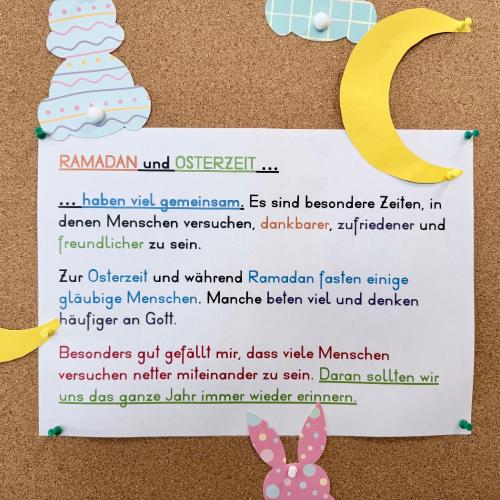 RAMADAN und OSTERZEIT ...
... haben viel gemeinsam. Es sind besondere Zeiten, in
denen Menschen versuchen, dankbarer, zufriedener und
freundlicher zu sein.
Zur Osterzeit und während Ramadan fasten einige
gläubige Menschen. Manche beten viel und denken
häufiger an Gott.
Besonders gut gefällt mir, dass viele Menschen
versuchen netter miteinander zu sein. Daran sollten wir
uns das ganze Jahr immer wieder erinnern.